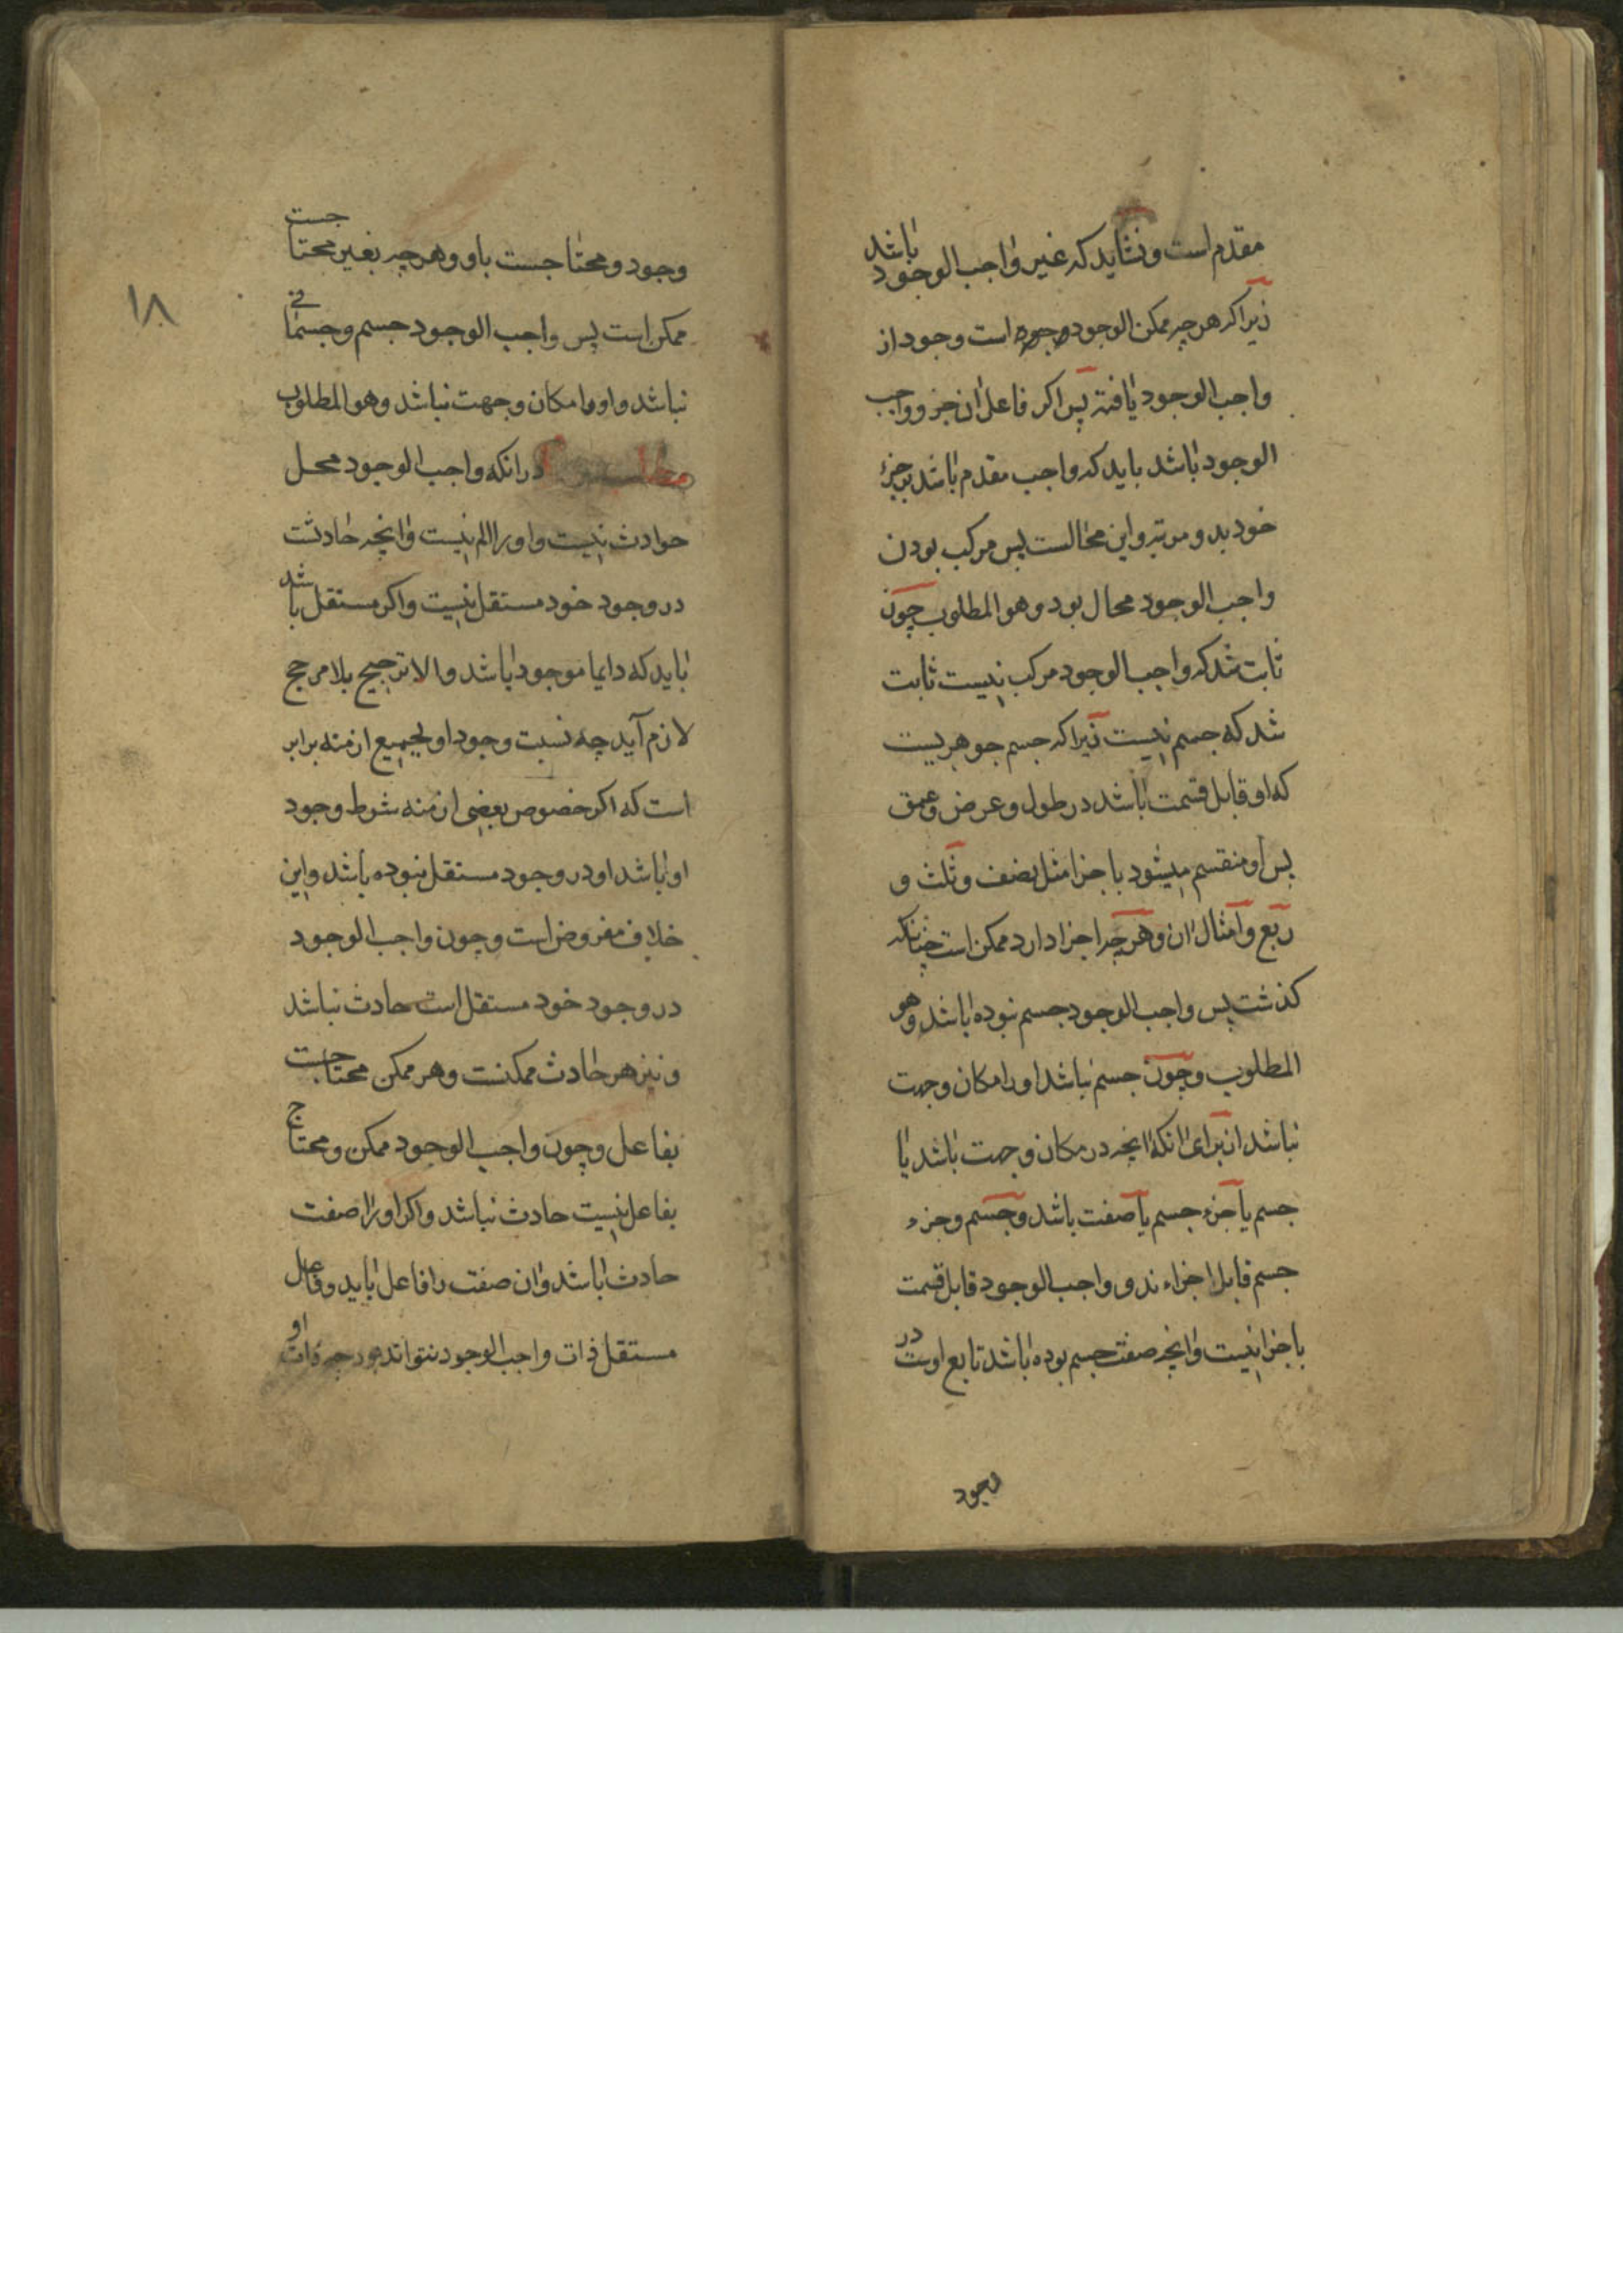 مقدم است و نشاید که غیر واجب الوجود باشد
زیرا که هر چه ممکن الوجود است وجود از
واجب الوجود یافته پس اکر فاعل ان جزو واجب
الوجود باشد باید که واجب مقدم باشد بر جزء
خود بدو مرتبه و این محالست پس مرکب بودن
واجب الوجود محال بود و هو المطلوب چون
ثابت شد که واجب الوجود مرکب نیست ثابت
شد که جسم نیست زیرا که جسم جوهریست
که او قابل قسمت باشد در طول و عرض و عمق
پس او منقسم میشود باجزا مثل نصف و ثلث و
ربع و امثال ان و هر چه اجزا دارد ممکن است چنانکه
کذشت پس واجب الوجود جسم نبوده باشد و هو
المطلوب و چون جسم نباشد او را مکان و جهت
نباشد از برای انکه انچه در مکان و جهت باشد یا
جسم یا جزء جسم یا صفت باشد و جسم و جزء
جسم قابل اجزاء ند و واجب الوجود قابل قسمت
باجزا نیست و انچه صفت جسم بوده باشد تابع اوست در
وجود
۱۸
وجود و محتاجست باو و هر چه بغیر محتاجست
ممکن است پس واجب الوجود جسم و جسمانی
نباشد و او را مکان و جهت نباشد و هو المطلوب
در انکه واجب الوجود محل
حوادث نیست و او را الم نیست و انچه حادثت
در وجود خود مستقل نیست و اکر مستقل باشد
باید که دایما موجود باشد و الا ترجیح بلا مرجح
لازم آید چه نسبت وجود او بجمیع ازمنه برابر
است که اکر خصوص بعضی ازمنه شرط وجود
او باشد او در وجود مستقل نبوده باشد و این
خلاف مفروض است و چون واجب الوجود
در وجود خود مستقل است حادث نباشد
و نیز هر حادث ممکنست و هر ممکن محتاجست
بفاعل و چون واجب الوجود ممکن و محتاج
بفاعل نیست حادث نباشد و اکر او را صفت
حادث باشد و ان صفت را فاعل باید و فاعل
مستقل ذات واجب الوجود نتواند بود چه ذات او